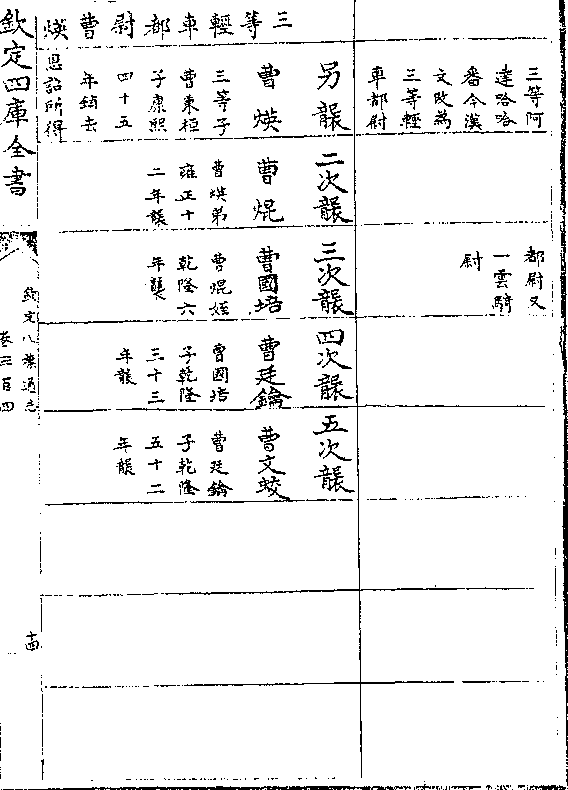 三等阿
達哈哈
番今漢
文改為
三等輕
車都尉
都尉又
一雲騎
尉
三等輕車都尉曹煐
另襲
曹煐
三等子
曹秉桓
子康熙
四十五
年銷去
恩詔所得
二次襲
曹焜
曹煐弟
雍正十
二年襲
三次襲
曹國培
曹焜姪
乾隆六
年襲
四次襲
曹廷鑰
曹國培
子乾隆
三十三
年襲
五次襲
曹文蛟
曹廷鑰
子乾隆
五十二
年襲
欽定四庫全書
欽定八旗通志
卷三百四
十四